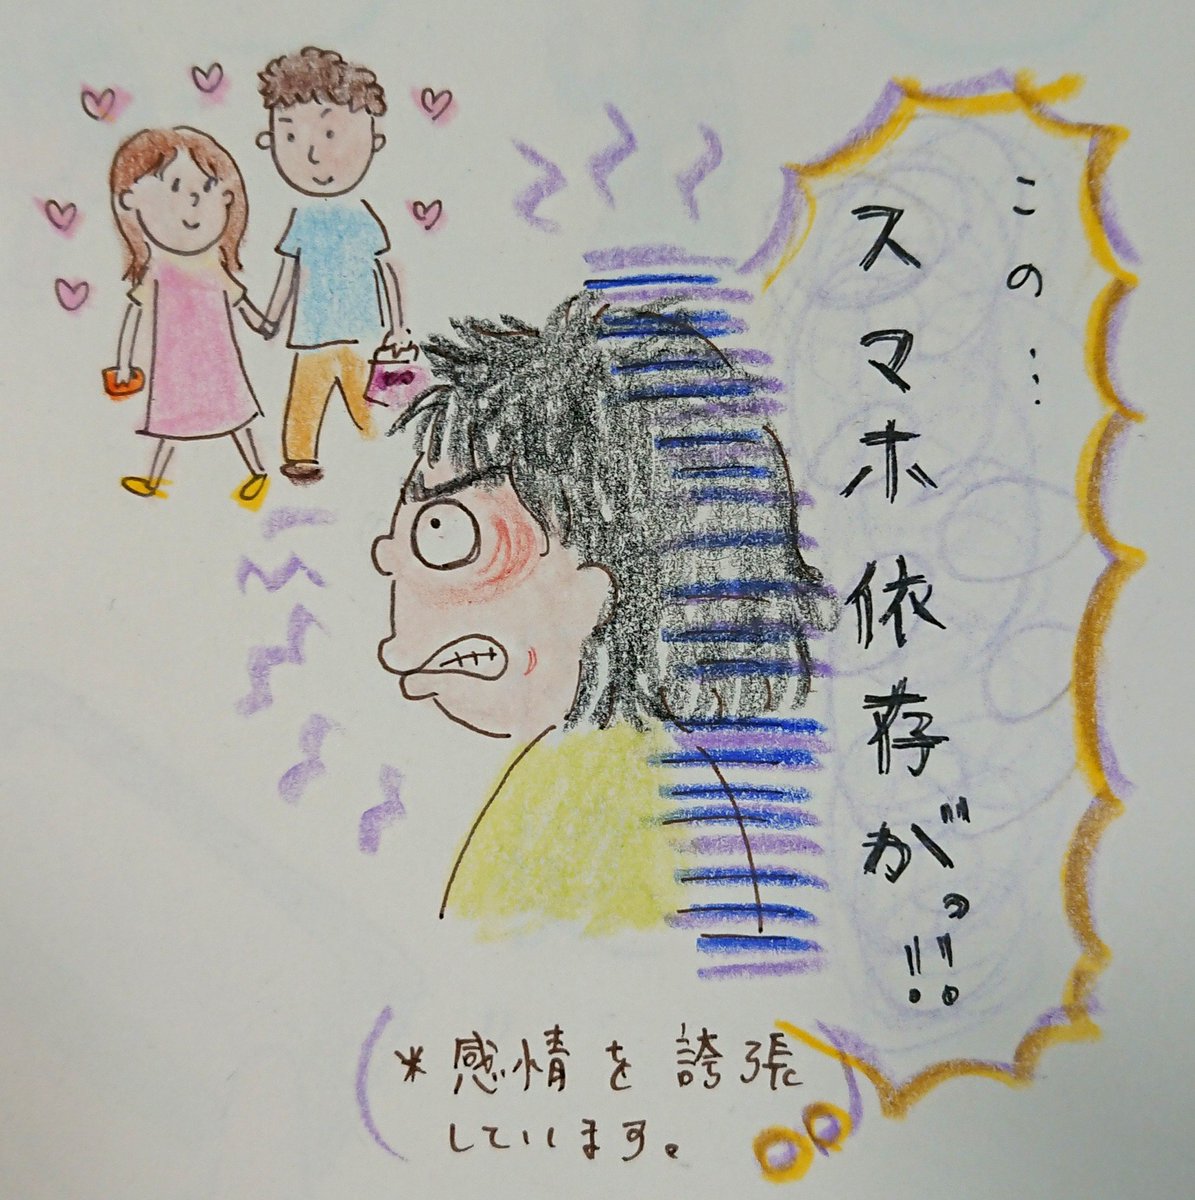 この…
スマホ依存がっ!!
(*感情を誇張
しています。)